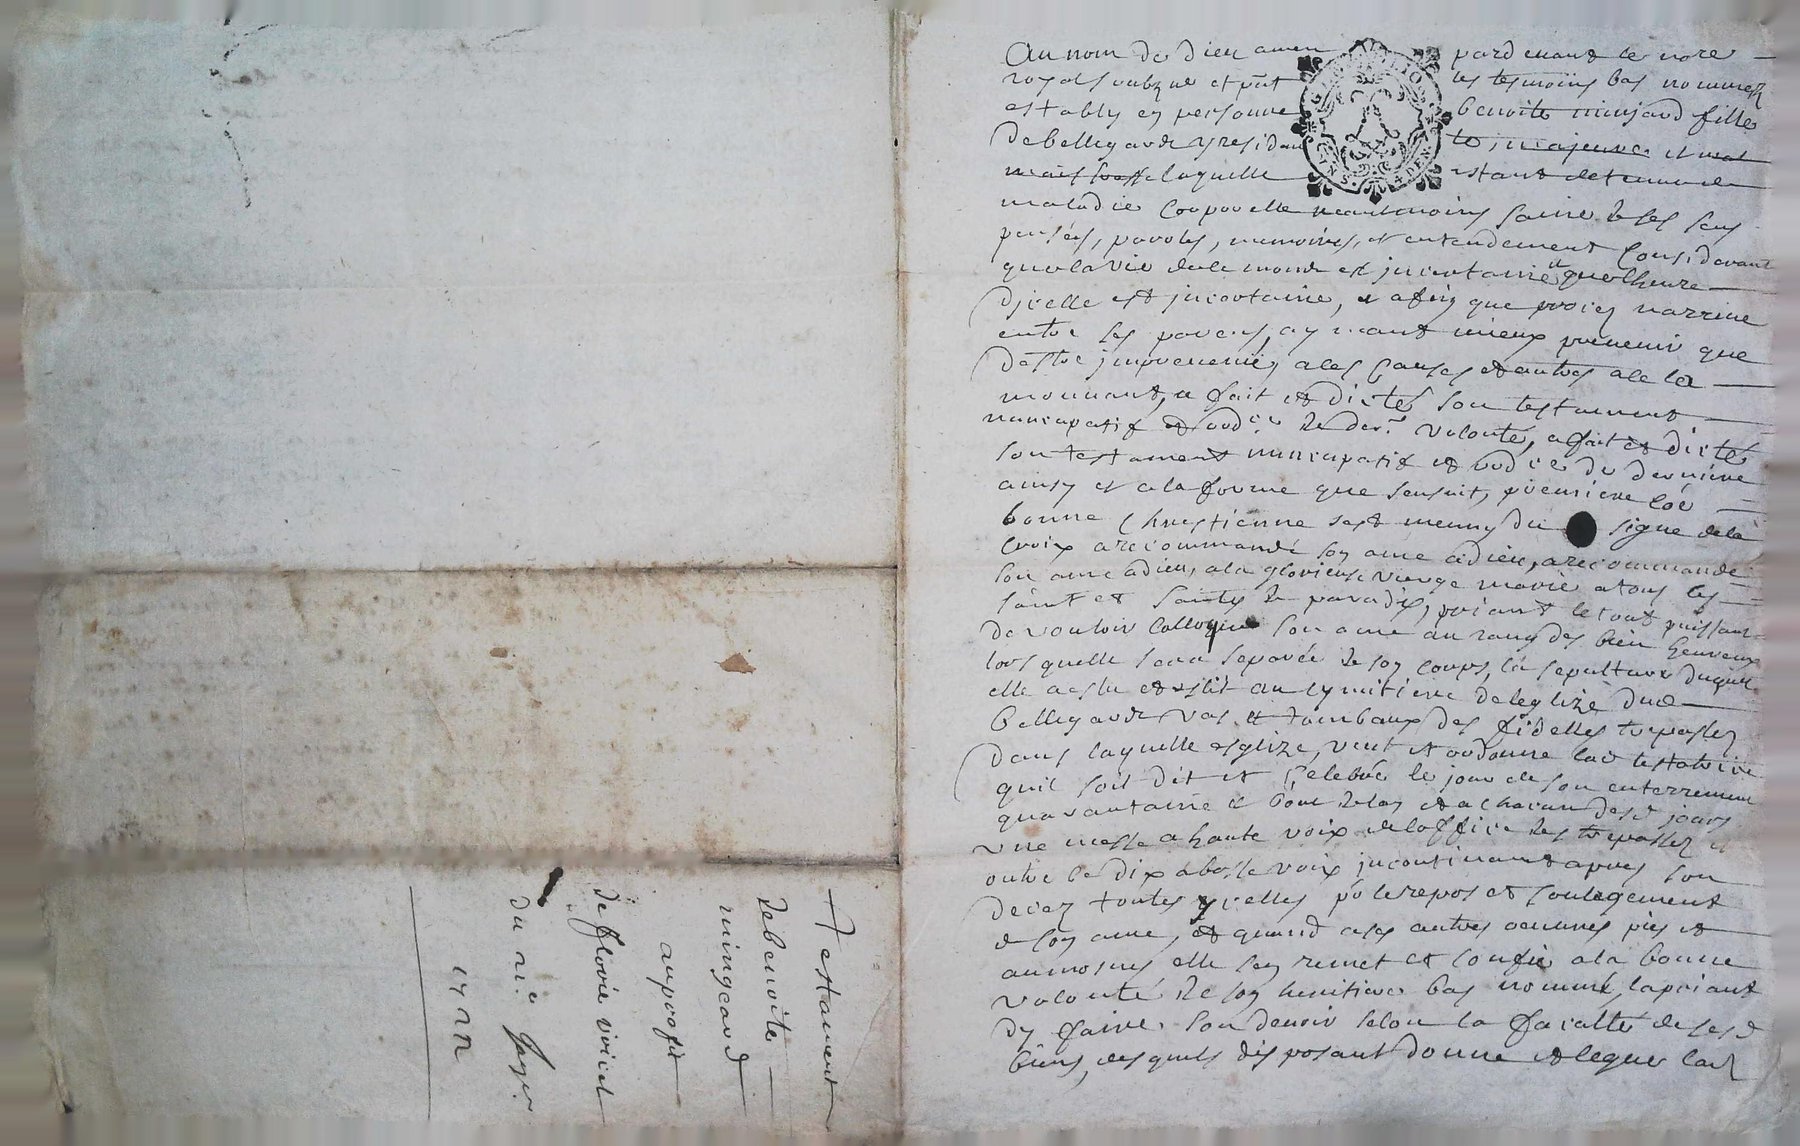 Testament
de benoite
mingeard
au profit
de florie viricel
du
1722
Au nom de Dieu amen pardevant le nore
royal soubzné et put les tesmoins bas nommez
estably en personne benoite minjard fille
de bellegarde y residante majeure et
mais laquelle estant detenue de
maladie corporelle neantmoins saine de ses sens
pensées, paroles, memoires, et entendement considerant
que la vie de le monde est incertaine et que lheure
dicelle est incertaine, et afin que narrive
entre ses parens, aymant mieux prevenir que
destre prevenue, a ses causes et autres a ce la
mouvant, a fait et dicté son testament
nuncupatif et ord.e de der.e volonté, a fait et dicté
son testament nuncupatif et ord.ce de derniere
ainsy et a la forme que sensuit, premiere
bonne Chrestienne sest meuny du signe de la
croix a recommandé son ame a dieu, a recommandé
son ame a dieu, a la glorieuse vierge marie a tous les
saint et saintes de paradis, priant le tout puissant
de vouloir colloquer son ame au rang des bien heureux
lors quelle sera separée de son corps, la sepulture duquel
elle a eslu et eslit au cymitiere de leglize dud
bellegarde vas et tombaux des fidelles trepassez
dans laquelle esglize, veut et ordonne lad testatrice
quil soit dit et celebré le jour de son enterrement
quarantaine et bout de lan et a chacun desd jours
une messe a haute voix de loffice des trepassez et
outre ce dix a basse voix incontinant apres son
decez toutes ycelles po le repos et soulagement
de son ame, et quand a ses autres oeuvres pies et
aumosnes elle sen remet et confie a la bonne
volonté de son heritiere bas nommé, la priant
dy faire son devoir selon la faculté de sesd
biens, desquels disposant donne et legue lad